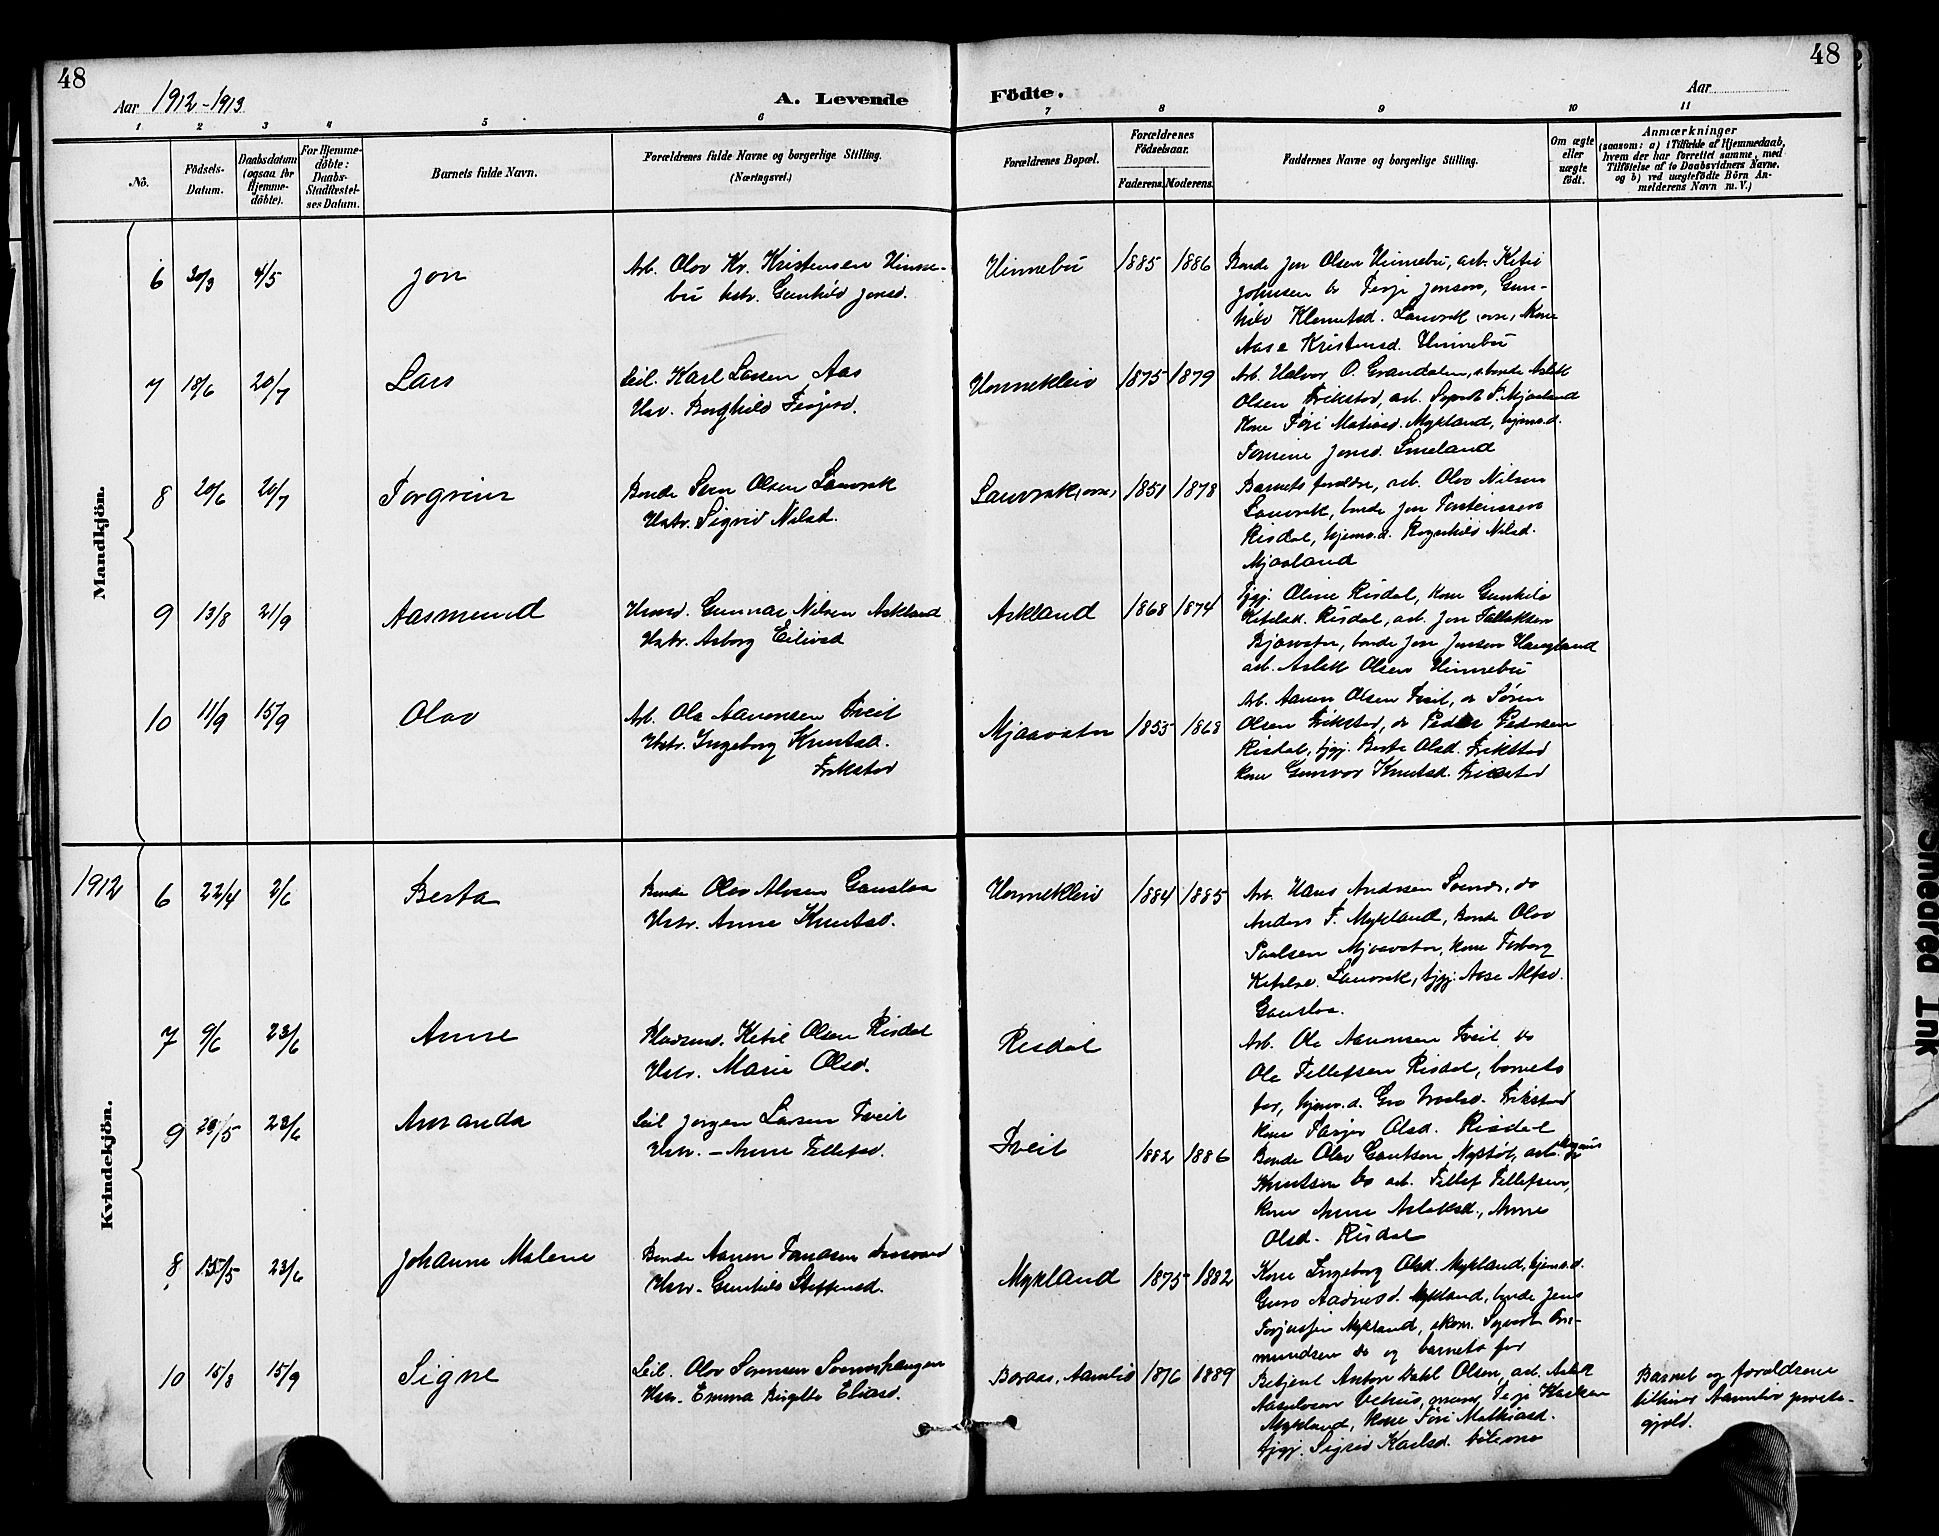 48
48
Aar 1912-1913
A. Levende Födte.
Aar
1 2 3 4 5 6 7 8 9 10 11
No.
Födsels-
Datum.
Daabsdatum
(ogsaa for
Hjemme-
döbte).
For Hjemme-
döbte:
Daabs-
Stadfæstel-
ses Datum.
Barnets fulde Navn.
Forældrenes fulde Navne og borgerlige Stilling.
(Næringsvei.)
Forældrenes Bopæl.
Forældrenes
Födselsaar.
Faderens. Moderens.
Faddernes Navne og borgerlige Stilling.
Om ægte
eller
uægte
født.
Anmærkninger
(saasom: a) i Tilfælde af Hjemmedaab,
hvem der har forrettet samme, med
Tilföielse af to Daabsvidners Navne.
og b) ved uægtefödte Börn An-
melderens Navn m. V.)
Mandkjön.
6 20/3 4/5 Jon
Arb. Olav Kr. Kristensen Hinne-
bu hstr. Gunhild Jonsd.
Hinnebu 1885 1886
Bonde Jon Olsen Hinnebu, arb. Ketil
Johnsen do Terje Jonson, Gun-
hild Klemetsd. Lauvrak, kone
Aase Kristensd. Hinnebu
7 18/6 20/7 Lars
Seil. Karl Larsen Aas
Hstr. Borghild Terjesd.
Honnekleiv 1875 1879
Arb. Halvor O. Grandalen, bonde Aslak
Olsen Frikstad, arb. Mjaaland
kone Töri Matiasd. Mykland, hjemv.d.
Tomine Jonsd. Smeland
8 20/6 20/7 Torgrim
Bonde Sven Olsen Lauvrak
Hstr. Sigrid Nilsd.
Lauvrak 1851 1878
Barnets forældre, arb. Olav Nilsen
Lauvrak, bonde Jon Torsteinsson
Risdal, hjemv.d. Ragnhild Nilsd.
Mjaaland
9 13/8 21/9 Aasmund
Gunnar Nilsen Askland
Hstr. Asborg Eilivsd
Askland 1868 1874
tjpj. Oline Risdal, kone Gunhild
Ketilsd. Risdal, arb. Jon Tallaksen
Bjorvatn, bonde Jon Jensen Haugland
arb. Aslak Olsen Hinnebu
10 11/9 15/9 Olav
Arb. Ola Aanonsen Tveit
Hstr. Ingeborg Knutsd.
Frikstad
Mjaavatn 1855 1868
Arb. Aanon Olsen Tveit, do Sören
Olsen Frikstad, do Peder Pedersen
Risdal, tjpj. Berte Olsd. Frikstad
kone Gunvor Knutsd. Frikstad
Kvindekjön.
1912 6 22/4 2/6 Berta
Bonde Olav Alvsen Gauslaa
Hstr. Anne Knutsd.
Honnekleiv 1884 1885
Arb. Hans Andersen, do
Anders T. Mykland, Bonde Olav
Paulsen Mjaavatn, kone Torborg
Ketilsd. Lauvrak, tjpj. Aase Alfsd.
Gauslaa.
7 9/6 23/6 Anne
Ketil Olsen Risdal
Hstr. Marie Olsd.
Risdal
Arb. Ola Aanonsen Tveit do
Ola Tellefsen Risdal, barnets
far, hjemv.d. Gro Frikstad
kone Olsd. Risdal
9 28/5 23/6 Amanda
Seil Jorgen Larsen Tveit
Hstr. - Anne Tellefsd.
Tveit 1882 1886
Bonde Olav Gautsen Nystöl, arb. Magnus
Knutsen do arb. Tellef Tellefsen,
kone Anne Aslaksd., Anne
Olsd. Risdal
8 15/5 23/6 Johanne Malene
Bonde Aanen
Hstr. Gunhild Steffensd.
Mykland 1875 1882
Kone Ingeborg Olsd. Mykland, hjemv.d.
Guro Aadnesd. Mykland, bonde Jens
Terjussen Mykland, Sigurd Om-
mundsen do og barnets far
10 15/8 15/9 Signe
Seil. Olav Sorensen
Hstr. Emma Birgitte Eliasd.
Boraas, Aamlid 1876 1889
Betjent Anton Olsen, arb. Aslak
Vehus, Terje
Mykland, kone Töri Mathiasd.
tjpj. Sigrid Karlsd.
Barnet og forældrene
tilhører Aamlid preste-
gjeld.
Smeared Ink